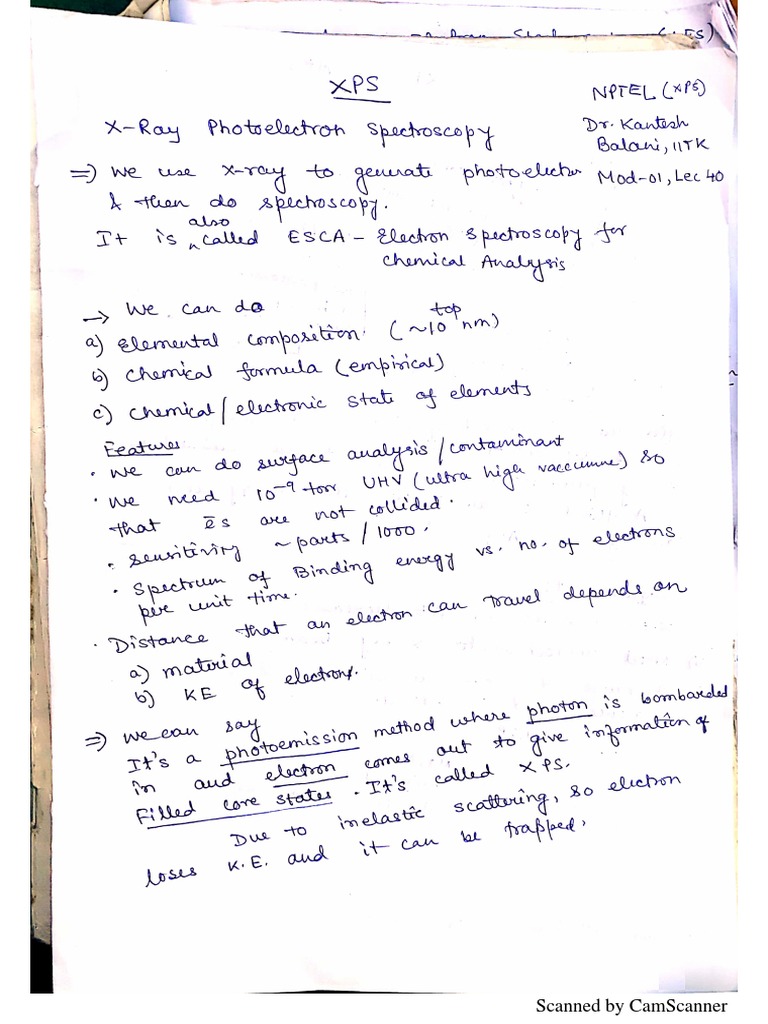 XPS
NPTEL (XPS)
X-Ray Photoelectron Spectroscopy
Dr. Kantesh
Balani, IITK
Mod-01, Lec 40
=) We use x-ray to generate photoelectron
& then do spectroscopy.
also
It is ^ called ESCA - Electron Spectroscopy for
Chemical Analysis
→ We can do
a) Elemental composition. (~ top 10 nm)
b) Chemical formula (empirical)
c) Chemical/electronic state of elements
Features
. We can do surface analysis/contaminant
. We need 10⁻⁹ torr UHV (ultra high vaccumne) so
that ēs are not collided.
. Sensitivity ~ parts/1000.
. Spectrum of Binding energy vs. no. of electrons
per unit time.
. Distance that an electron can travel depends on
a) material
b) KE of electrons.
=) We can say
It's a photoemission method where photon is bombarded
in and electron comes out to give information of
Filled core states. It's called XPS.
Due to inelastic scattering, so electron
loses K.E. and it can be trapped.
Scanned by CamScanner